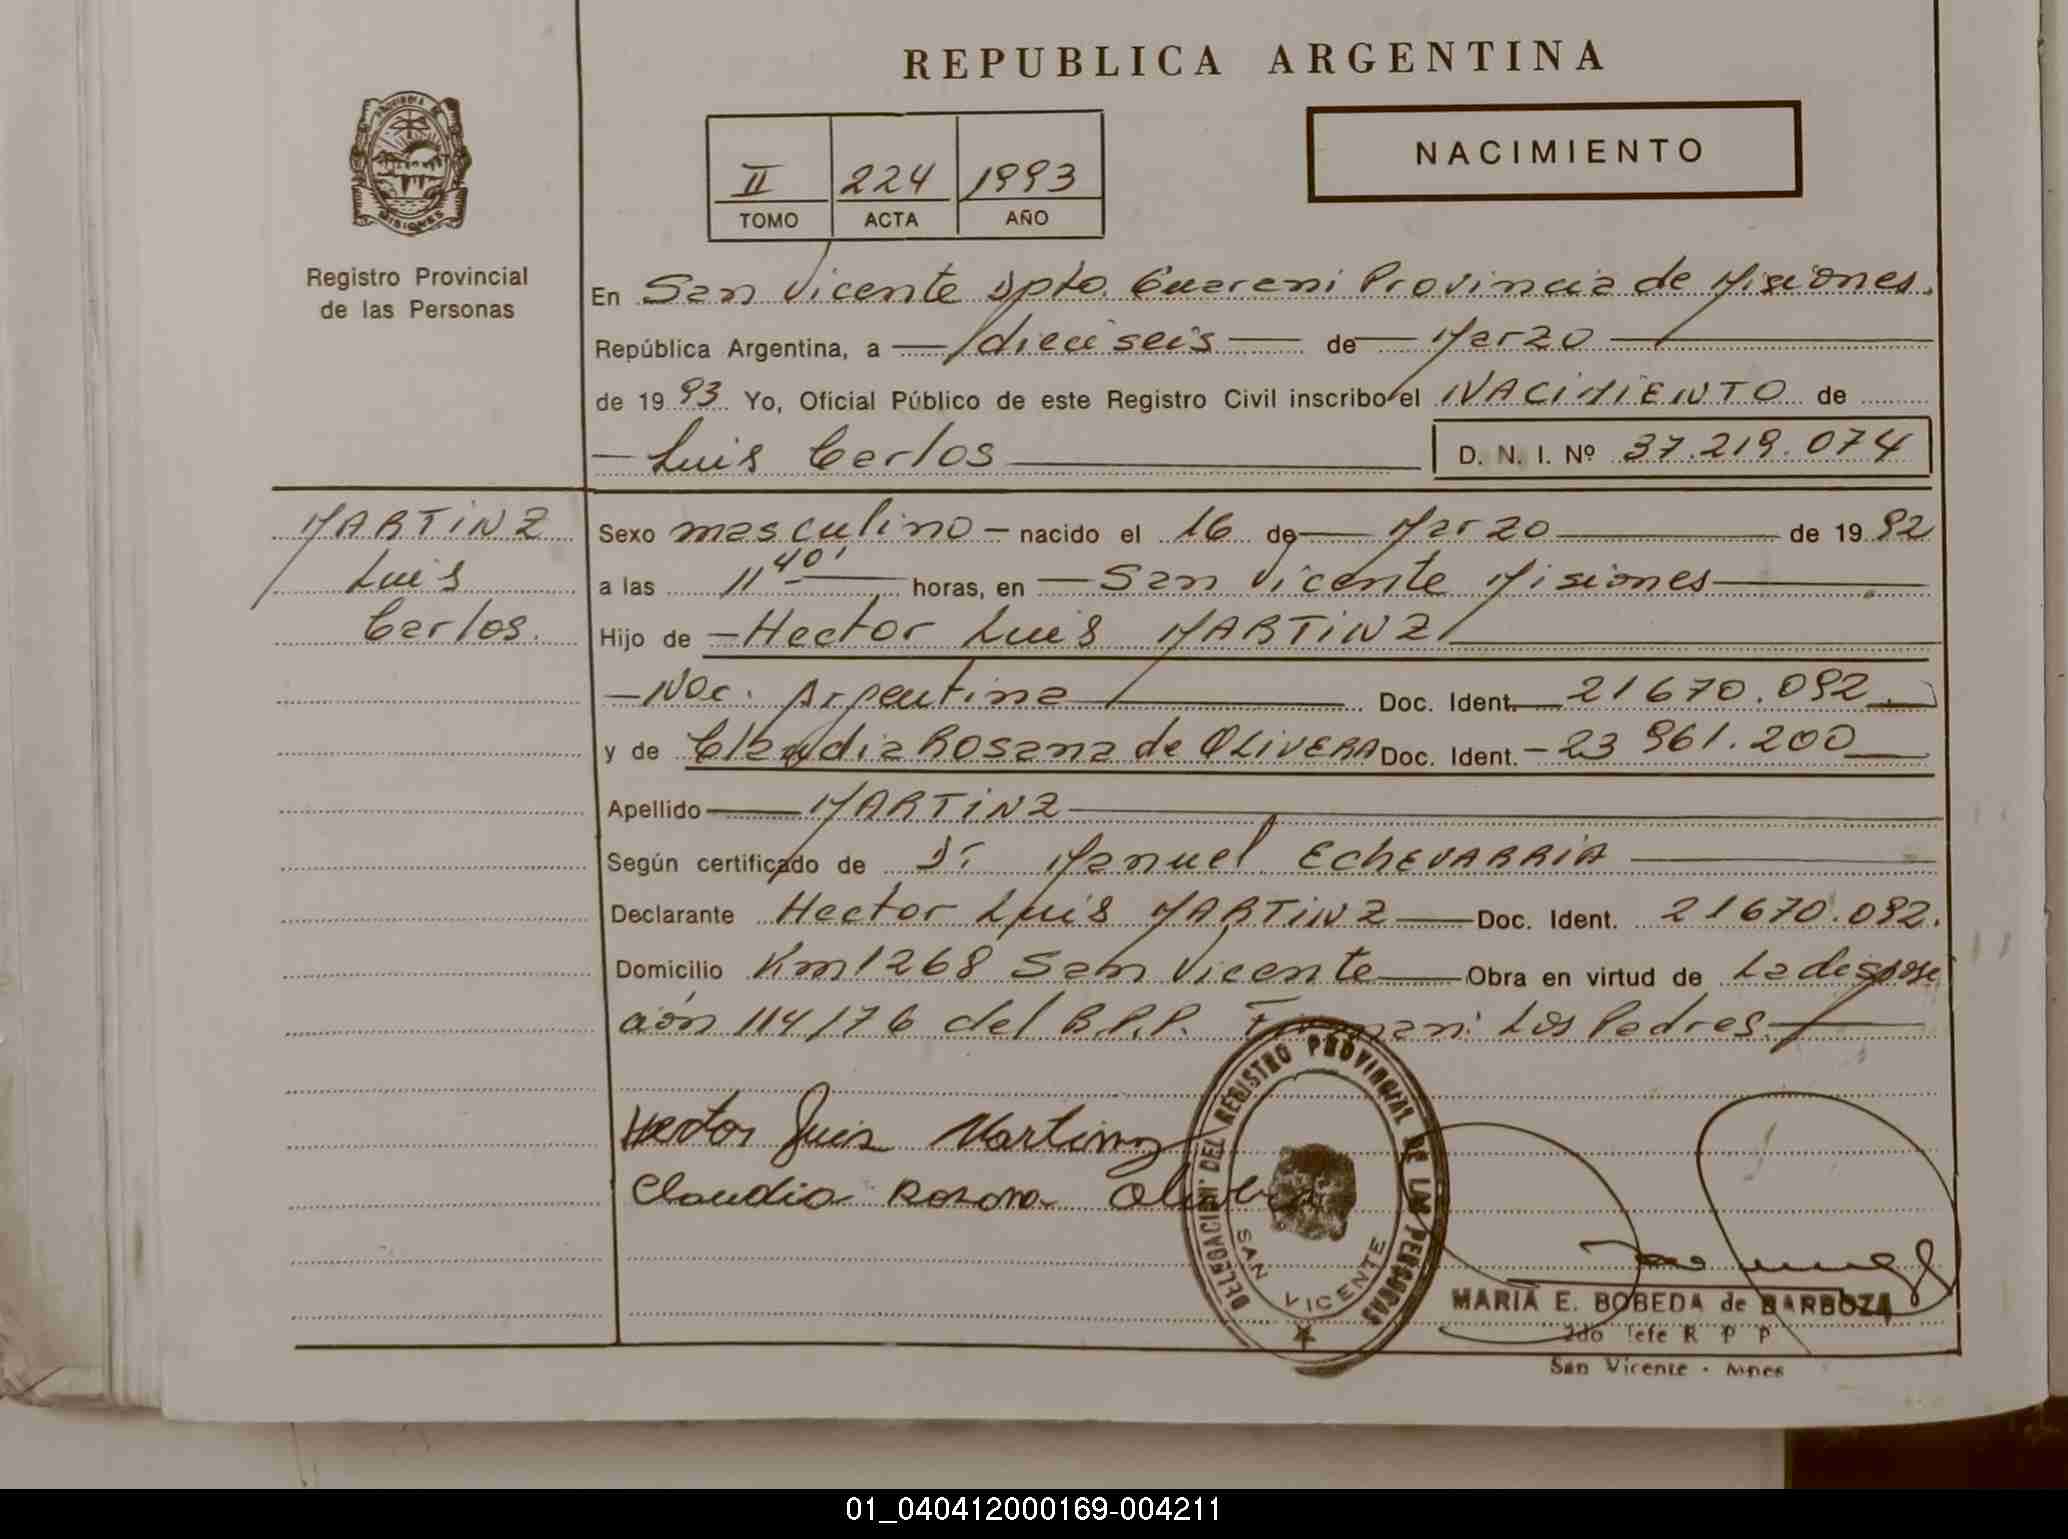 REPUBLICA ARGENTINA
NACIMIENTO
II 224 1993
TOMO ACTA AÑO
MISIONES
Registro Provincial
de las Personas
En San Vicente Dpto. Guarani Provincia de Misiones.
República Argentina, a dieciseis de Marzo
de 1993 Yo, Oficial Público de este Registro Civil inscribo el NACIMIENTO de
Luis Carlos D. N. I. Nº 37.219.074
MARTINZ
Luis
Carlos.
Sexo masculino - nacido el 16 de Marzo de 1992
a las 11 40' horas, en San Vicente Misiones
Hijo de Hector Luis MARTINZ
Nac. Argentina Doc. Ident. 21670.092.
y de Claudia Rosana de OLIVERA Doc. Ident. 23 961.200
Apellido MARTINZ
Según certificado de Dr Manuel ECHEVARRIA
Declarante Hector Luis MARTINZ Doc. Ident. 21670.092.
Domicilio Km 1268 San Vicente Obra en virtud de La disposi
ción 114/76 del R.P.P. Firman: Los Padres.
Hector Luis Martinz
Claudia Rosana Olivera
DELEGACION DEL REGISTRO PROVINCIAL DE LAS PERSONAS
SAN VICENTE
MARIA E. BOBEDA de BARBOZA
2do Jefe R P P
San Vicente - Mnes
01_040412000169-004211